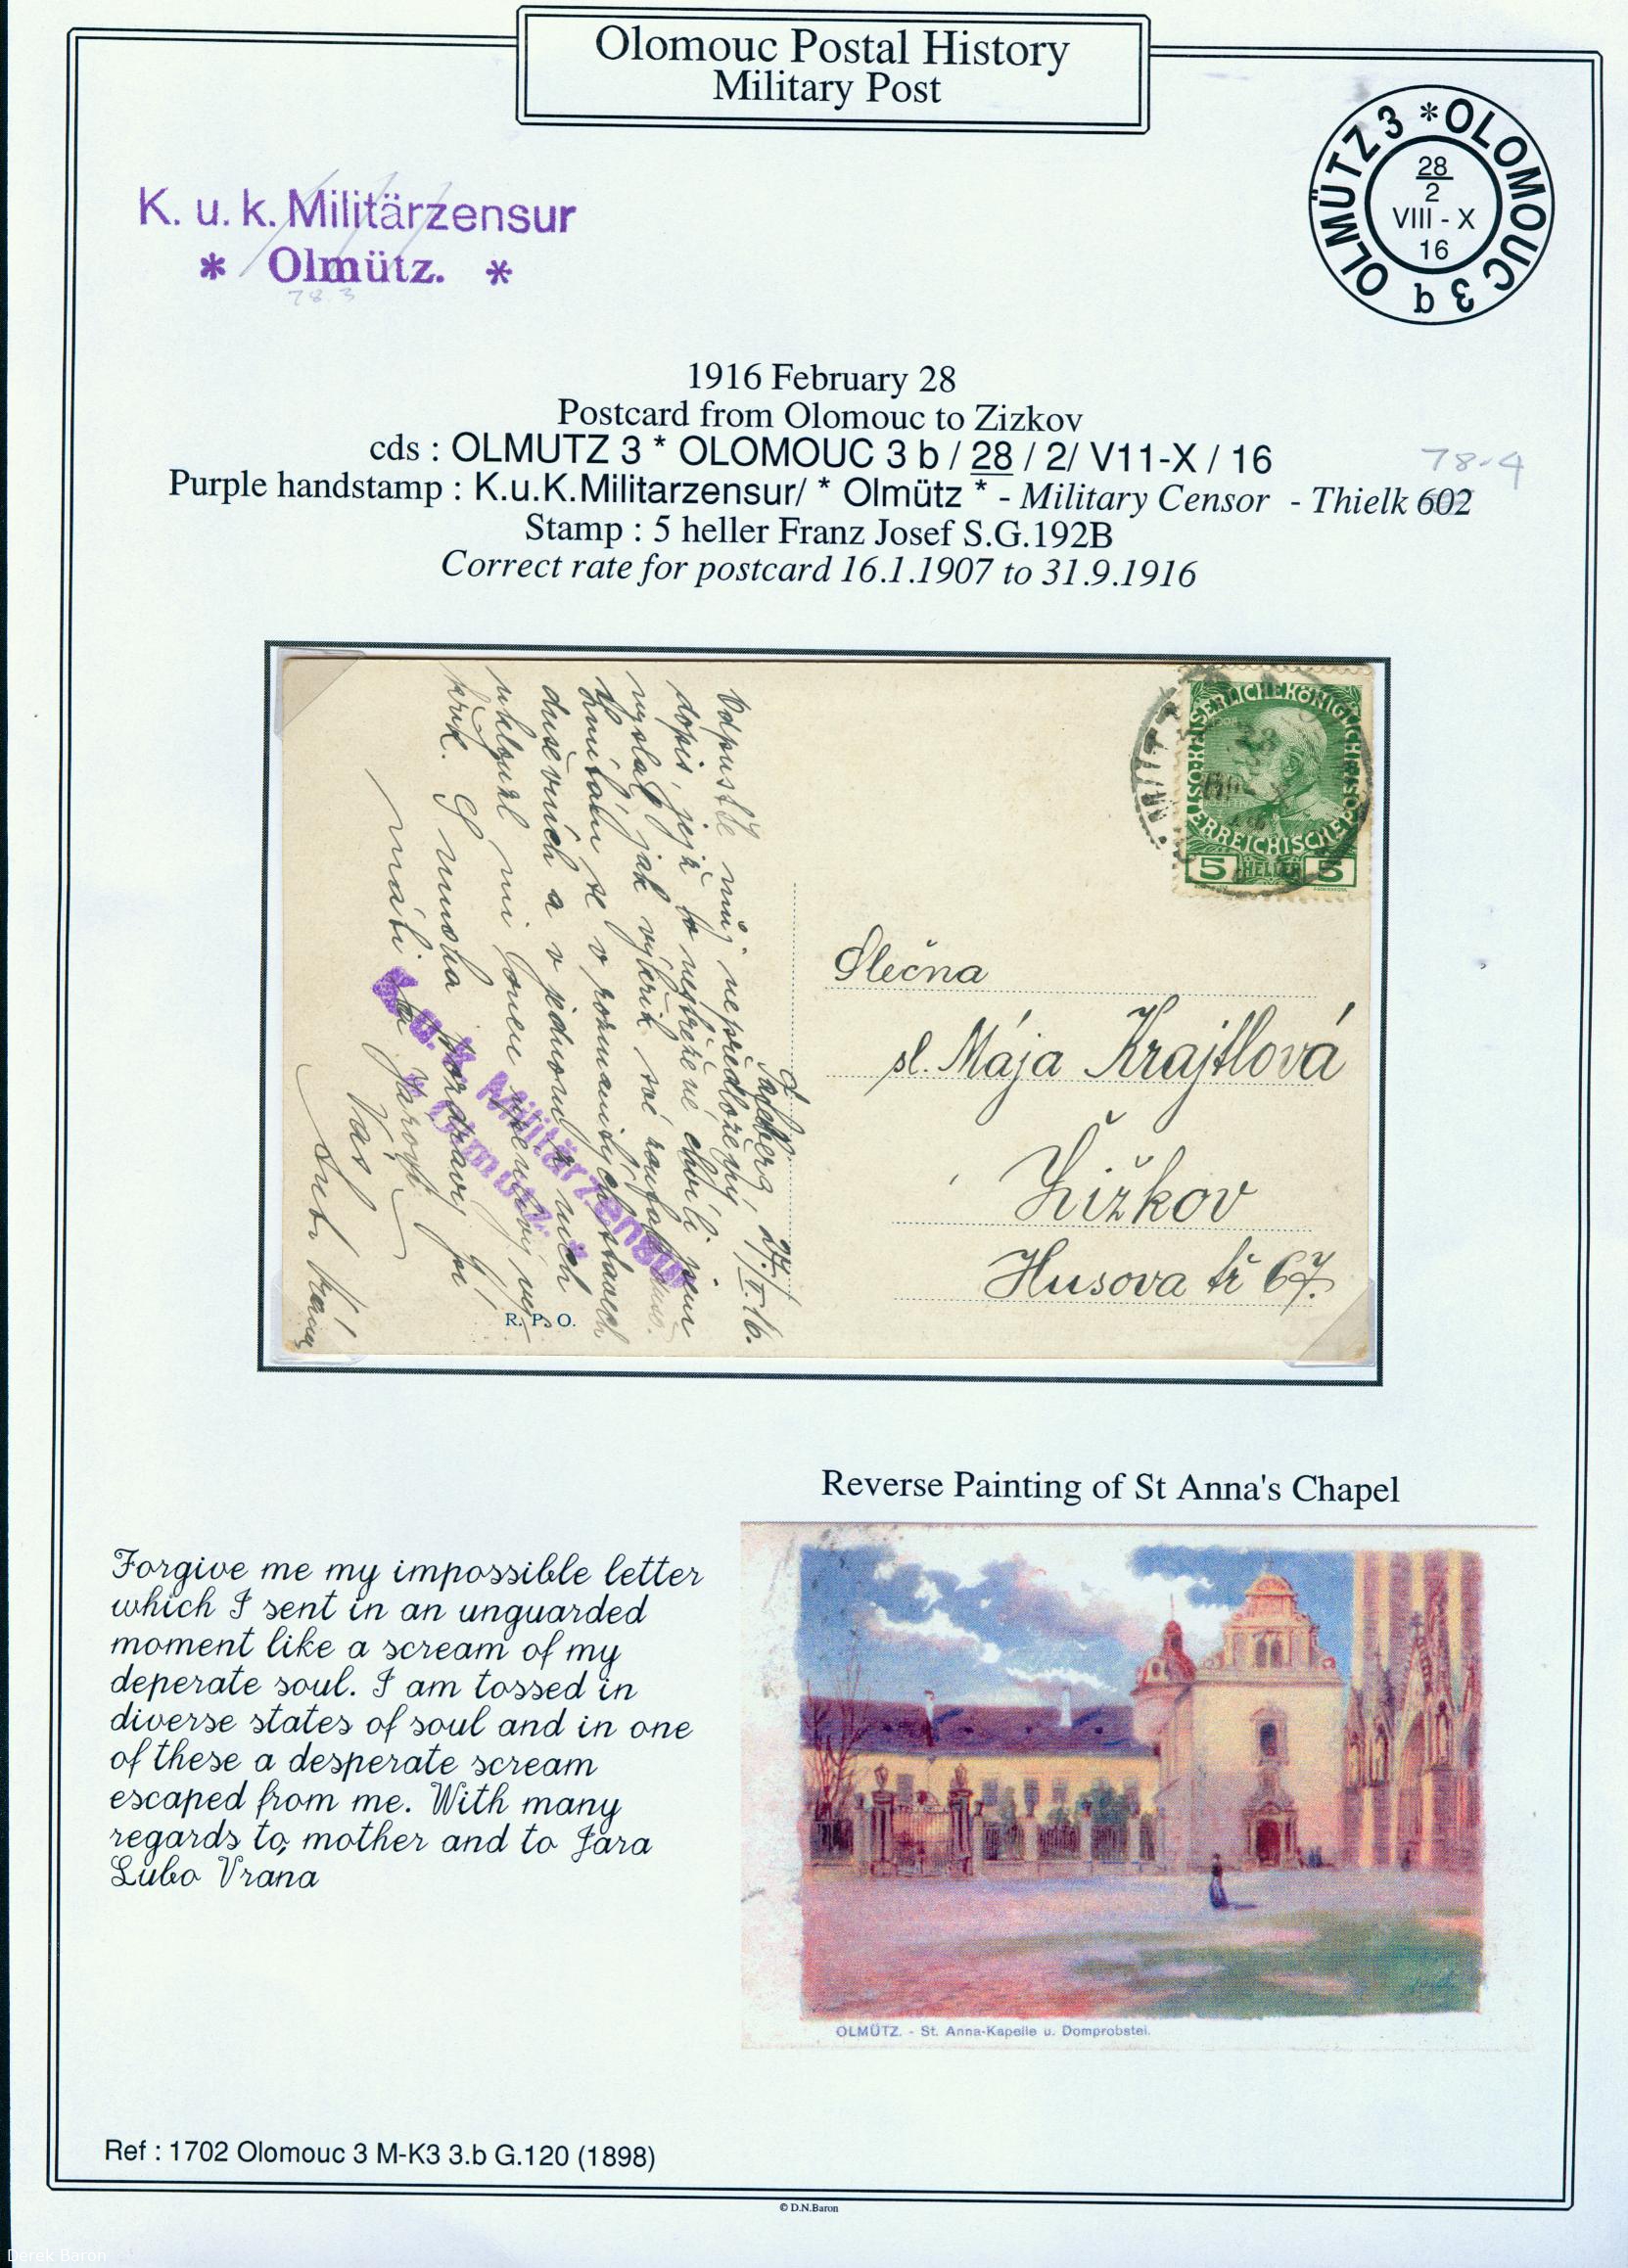 Olomouc Postal History
Military Post
K. u. k. Militärzensur
* Olmütz. *
78.3
OLMÜTZ 3 * OLOMOUC 3 b
28
2
VIII - X
16
1916 February 28
Postcard from Olomouc to Zizkov
cds : OLMUTZ 3 * OLOMOUC 3 b / 28 / 2/ V11-X / 16
78-4
Purple handstamp : K.u.K.Militarzensur/ * Olmütz * - Military Censor - Thielk 602
Stamp : 5 heller Franz Josef S.G.192B
Correct rate for postcard 16.1.1907 to 31.9.1916
KAISERLICHE KÖNIGLICHE ÖSTERREICHISCHE POST
5 HELLER 5
Slečna
sl. Mája Krajtlová
Žižkov
Husova tř 67.
27./I. 16.
Odpusťte můj nepředložený
dopis, jejž
vyslal jak výkřik své
zmítám se v
duševních a v jednom z nich
uklouzl mi onen
křik. S mnoha pozdravy
máti a
Váš
K. u. k. Militärzensur
* Olmütz. *
R. P. O.
Reverse Painting of St Anna's Chapel
Forgive me my impossible letter
which I sent in an unguarded
moment like a scream of my
deperate soul. I am tossed in
diverse states of soul and in one
of these a desperate scream
escaped from me. With many
regards to; mother and to Jara
Lubo Vrana
OLMÜTZ. - St. Anna-Kapelle u. Domprobstei.
Ref : 1702 Olomouc 3 M-K3 3.b G.120 (1898)
© D.N.Baron
Derek Baron